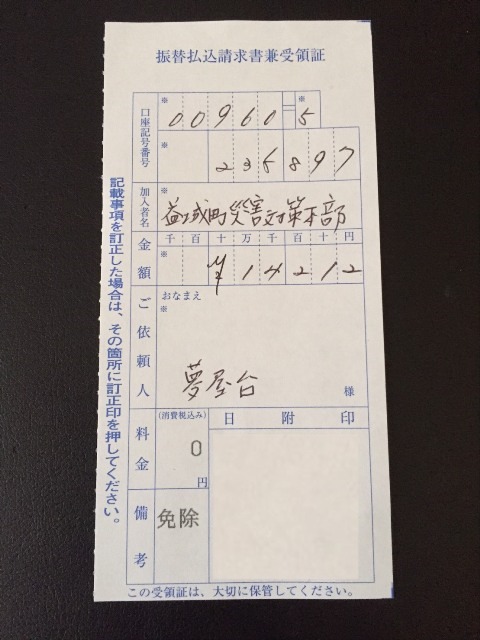 振替払込請求書兼受領証
口座記号番号
※
00960
※
5
※
235897
加入者名
※
益城町災害対策本部
金額
千 百 十 万 千 百 十 円
※
¥14212
ご依頼人
おなまえ
※
夢屋台
様
料金
(消費税込み)
0
円
日 附 印
備考
免除
この受領証は、大切に保管してください。
記載事項を訂正した場合は、その箇所に訂正印を押してください。